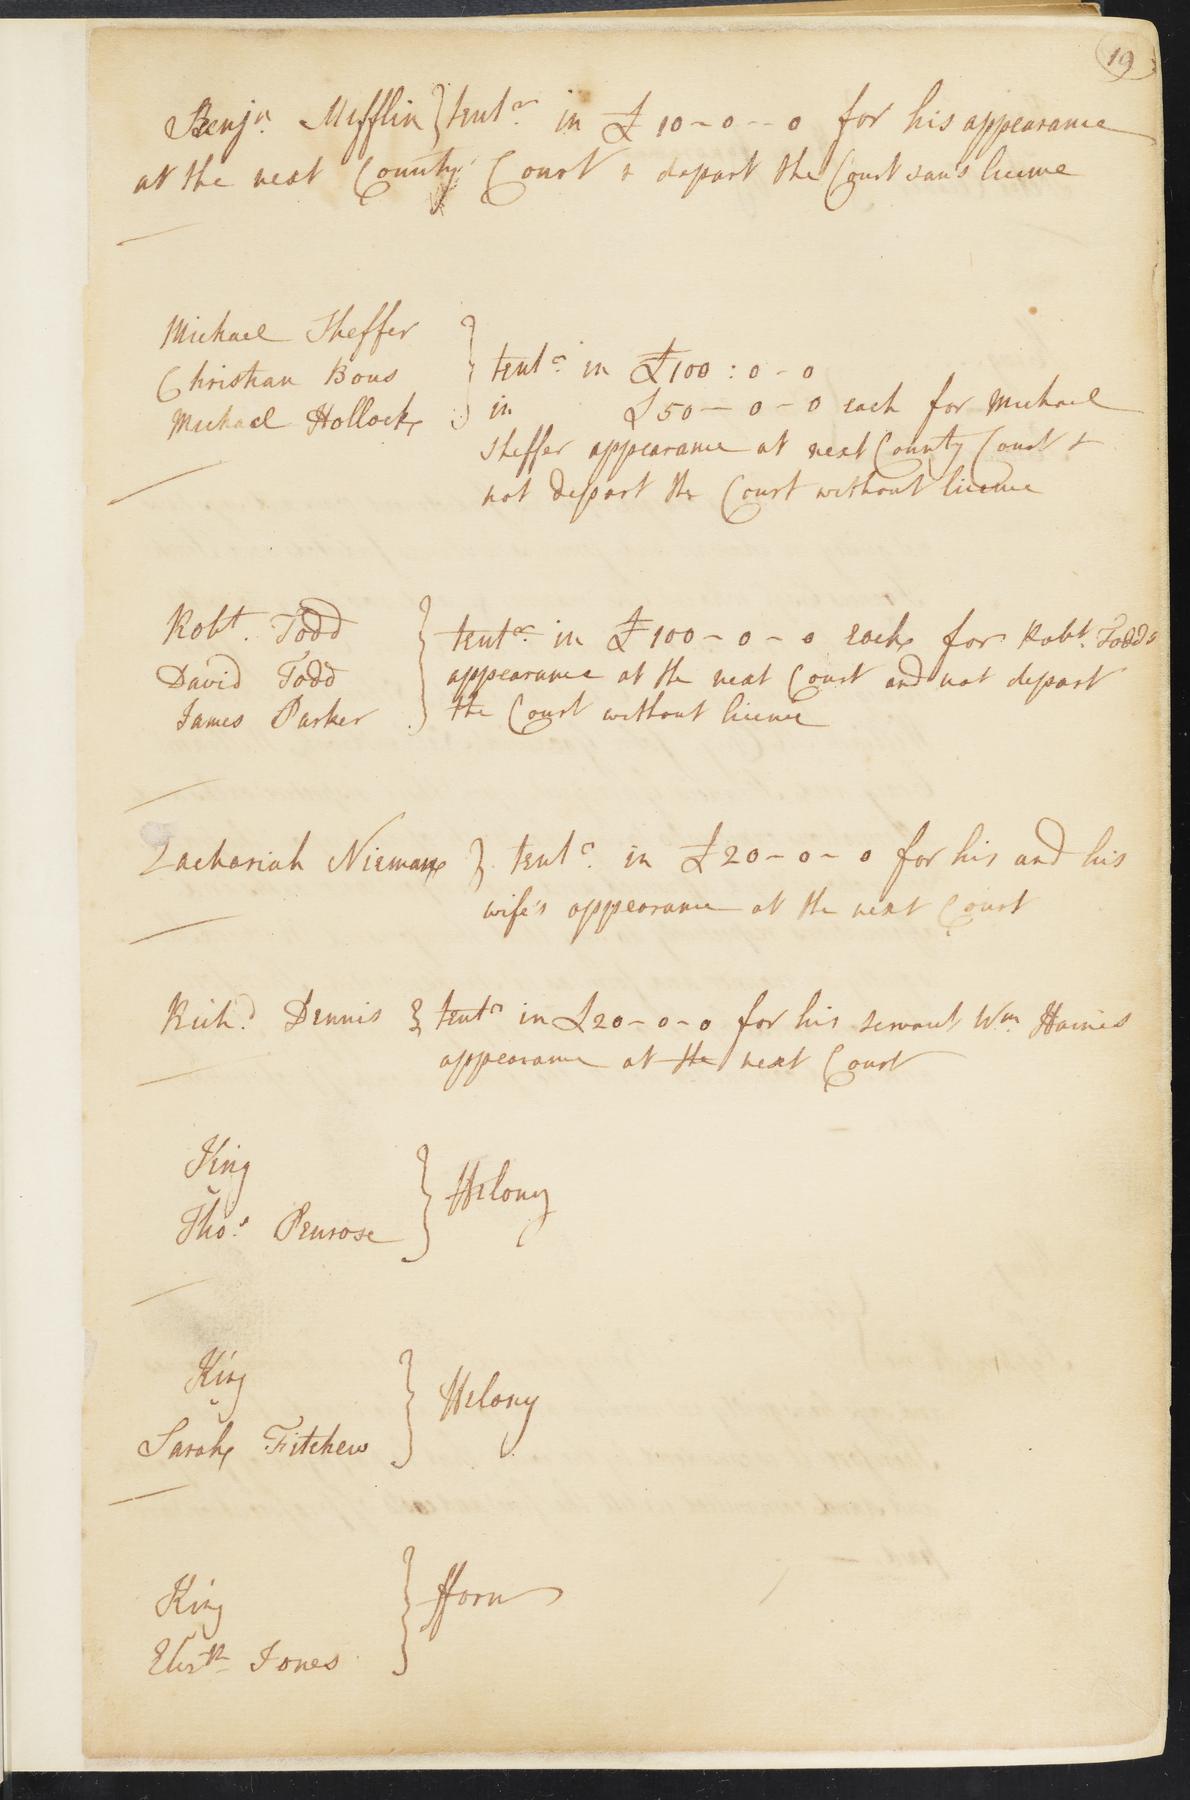 19
Benjn. Mifflin } tentr. in £10-0--0 for his appearance
at the next County Court & depart the Court sans licence
Michael Sheffer
Christian Bous
Michael Hollock
} tentr. in £100:0-0
in £50-0-0 each for Michael
Sheffer appearance at next County Court &
not depart the Court without licence
Robt. Todd
David Todd
James Parker
} tentr. in £100-0-0 each for Robt. Todds
appearance at the next Court and not depart
the Court without licence
Zachariah Nieman } tentr. in £20-0-0 for his and his
wife's appearance at the next Court
Richd. Dennis } tentr in £20-0-0 for his servant Wm Haines
appearance at the next Court
King
v
Thos. Penrose
} ffelony
King
v
Sarah Fitchew
} ffelony
King
Elizth Jones
} fforn